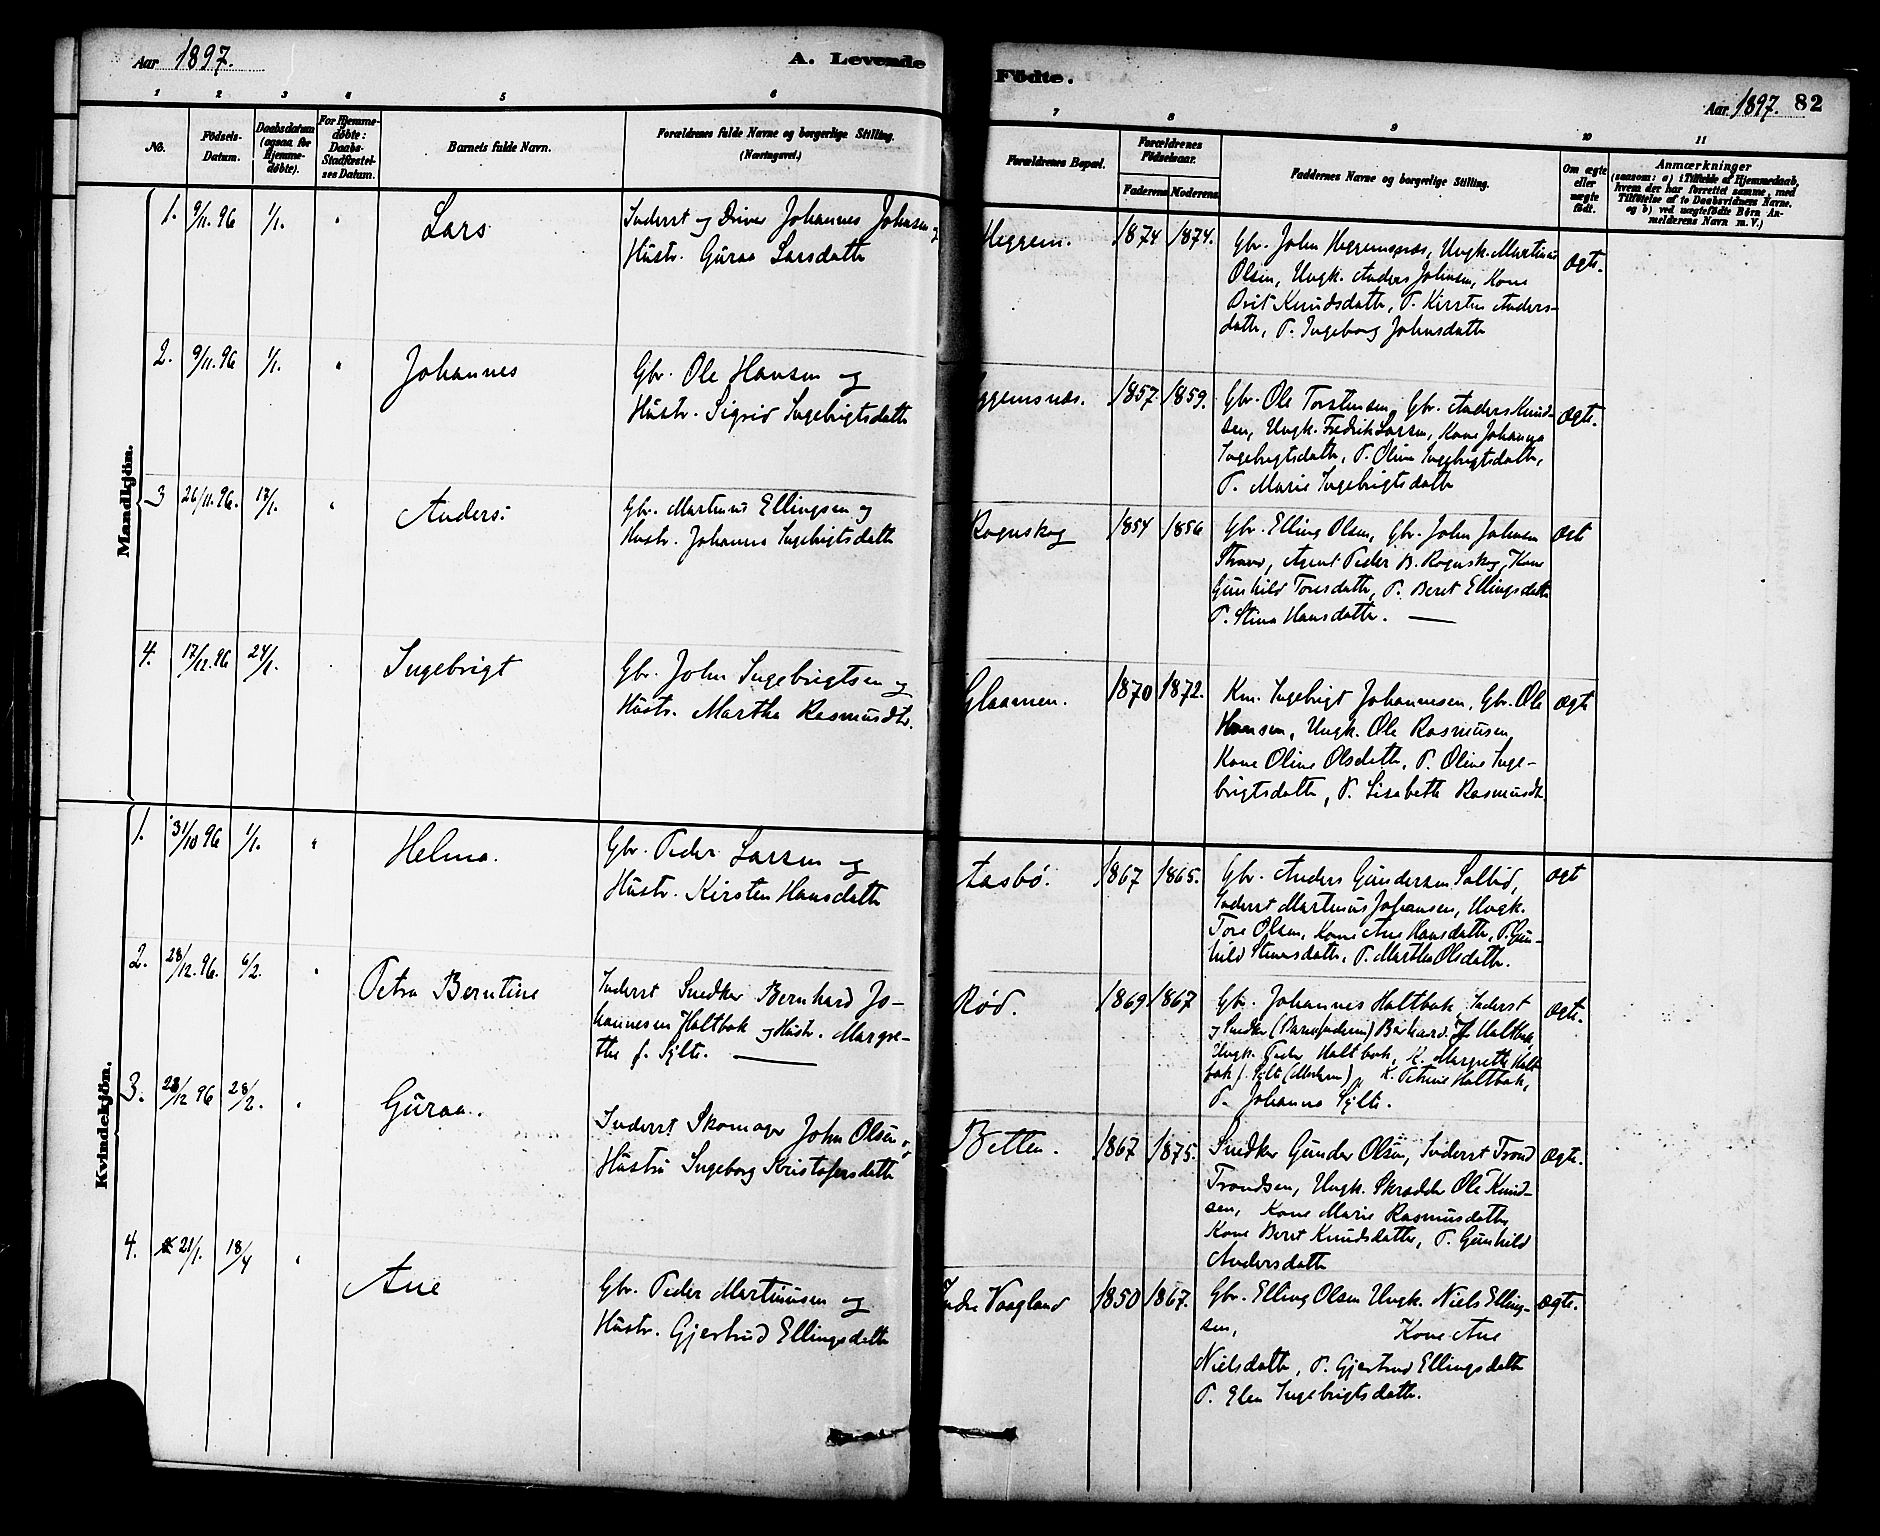 Aar 1897.
A. Levende Födte.
Aar 1897. 82
1 2 3 4 5 6 7 8 9 10 11
No.
Födsels-Datum.
Daabsdatum (ogsaa for Hjemme-døbte).
For Hjemme-døbte: Daabs-Stadfæstel-ses Datum.
Barnets fulde Navn.
Forældrenes fulde Navne og borgerlige Stilling. (Næringsvei.)
Forældrenes Bopæl.
Forældrenes Födselsaar.
Faderens Moderens
Faddernes Navne og borgerlige Stilling.
Om ægte eller uægte födt.
Anmærkninger
(saasom: a) i Tilfælde af Hjemmedaab,
hvem der har forrettet samme, med
Tilføielse af to Daabsvidners Navne.
og b) ved uægtefödte Börn An-
melderens Navn m.V.)
Mandkjön.
1. 9/11.96 1/1. " Lars
Inderst og Driver Johannes Johnsen og
Hustr. Guraa Larsdatter
Heggem. 1874 1874.
Gbr. John Heggemsnæs, Ungk. Martinus
Olsen, Ungk. Anders Johnsen, Kone
Brit Knudsdatter, P. Kirsten Anders-
datter, P. Ingeborg Johnsdatter
Ægte.
2. 9/11.96 1/1. " Johannes
Gbr. Ole Hansen og
Hustr. Sigrid Ingebrigtsdatter
ggemsnæs. 1857. 1859.
Gbr. Ole Torstensen, Gbr. Anders Knud-
sen, Ungk. Fredrik Larsen, Kone Johanna
Ingebrigtsdatter, P. Oline Ingebrigtsdatter,
P. Marie Ingebrigtsdatter
Ægte.
3 26/11.96. 17/1. " Anders.
Gbr. Martinus Ellingsen og
Hustr. Johanna Ingebrigtsdatter
Rognskog 1854 1856
Gbr. Elling Olsen, Gbr. John Johnsen
Agent Peder B. Rognskog, Kone
Gunhild Toresdatter, P. Beret Ellingsdatter
P. Stina Hansdatter. —
Ægt
4. 17/12.96 24/1. Ingebrigt
Gbr. John Ingebrigtsen og
Hustr. Martha Rasmusdtr.
Glaamen. 1870 1872.
Km. Ingebrigt Johannesen, Gbr. Ole
Hansen, Ungk. Ole Rasmusen,
Kone Oline Olsdatter, P. Oline Inge-
brigtsdatter, P. Lisabeth Rasmusdt.
Ægte
Kvindekjön.
1. 31/10 96 1/1. " Helma.
Gbr. Peder Larsen og
Hustr. Kirsten Hansdatter
Aasbø. 1867 1865.
Gbr. Anders Gundersen Sollid,
Inderst Martinus Johansen, Ungk.
Tore Olsen, Kone Ane Hansdatter, P. Gun-
hild Stenersdatter, P. Martha Olsdatter.
Ægt
2. 28/12.96. 6/2. " Petra Berntine
Inderst Snedker Bernhard Jo-
hannesen Haltbak og Hustr. Margre-
the f. Sylte. —
Rød. 1869 1867
Gbr. Johannes Haltbak, Inderst
og Snedker (Barnefaderen) Bernhard J. Haltbak,
Ungk. Peder Haltbak, K. Margrethe Halt-
bak f. Sylte (Moderen), K. Petrine Haltbak,
P. Johanna Sylte.
Ægte.
3. 28/12 96 28/2. " Guraa.
Inderst Skomager John Olsen og
Hustru Ingeborg Kristofersdatter
Betten. 1867 1875.
Snedker Gunder Olsen, Inderst Trond
Trondsen, Ungk. Skrædder Ole Knud-
sen, Kone Marie Rasmusdatter
Kone Beret Knudsdatter, P. Gunhild
Andersdatter
Ægte.
4. 21/1. 18/4 " Ane
Gbr. Peder Martinusen og
Hustr. Gjertrud Ellingsdatter
Indre Vaagland 1850 1867.
Gbr. Elling Olsen Ungk. Niels Elling-
sen, Kone Ane
Nielsdatter, P. Gjertrud Ellingsdatter
P. Elen Ingebrigtsdatter.
Ægte.